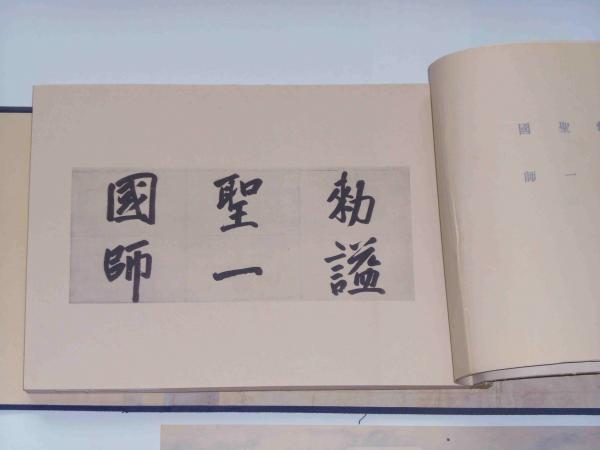 勅諡
聖一
國師
聖一
國師